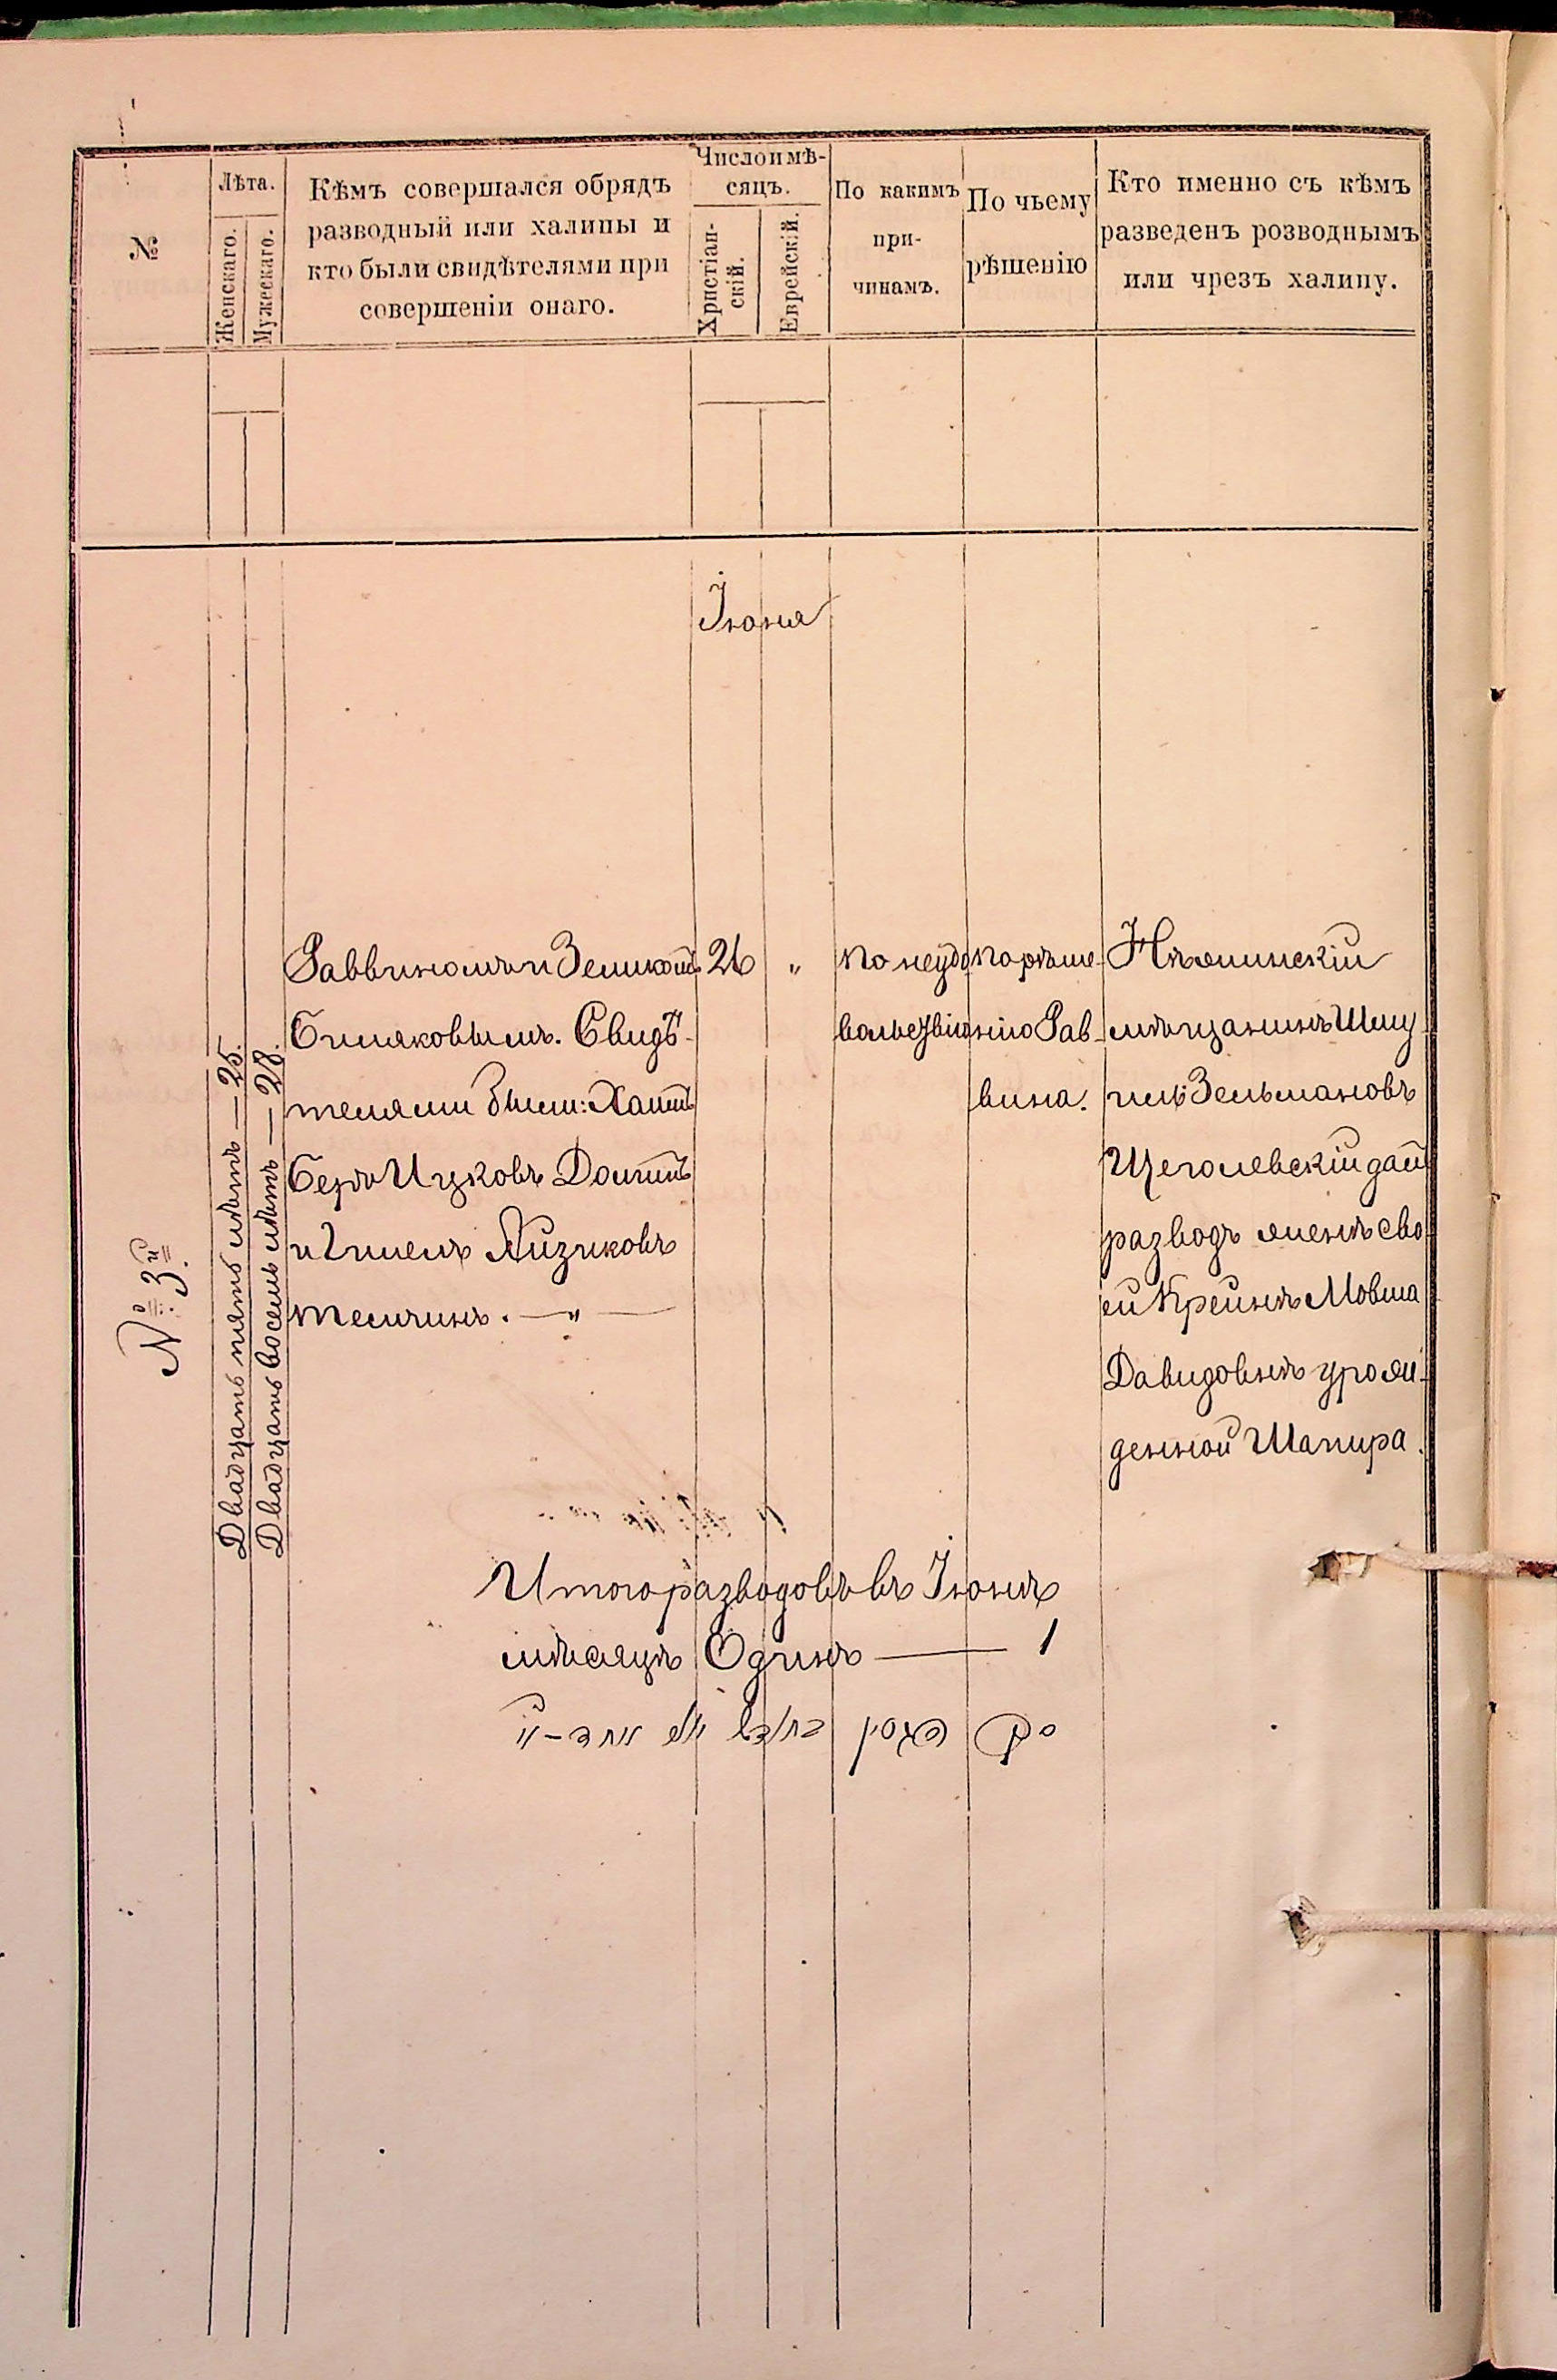 №
Лѣта.
Женскаго.
Мужескаго.
Кѣмъ совершался обрядъ
разводный или халицы и
кто были свидѣтелями при
совершеніи онаго.
Число и мѣ-
сяцъ.
Христіан-
скій.
Еврейскій.
По какимъ
при-
чинамъ.
По чьему
рѣшенію
Кто именно съ кѣмъ
разведенъ розводнымъ
или чрезъ халицу.
Іюня
№ 3й.
Двадцать пять лѣтъ — 25.
Двадцать восемь лѣтъ — 28.
Раввиномъ Зеликом
Бишяковымъ. Свидѣ-
телями были: Хаимъ
Беръ Ицковъ
и Гилелъ Айзиковъ
Телчинъ. — " —
26 "
по неудо
вольствію
по рѣше-
нію Рав-
вина.
Нѣжинскій
мѣщанинъ Шму
иль Зельмановъ
Щеголевскій далъ
разводъ женѣ сво
ей Крейнѣ Мовша
Давидовнѣ урож-
денной Шапиро.
Итого разводовъ въ Іюнѣ
мѣсяцѣ Одинъ — 1